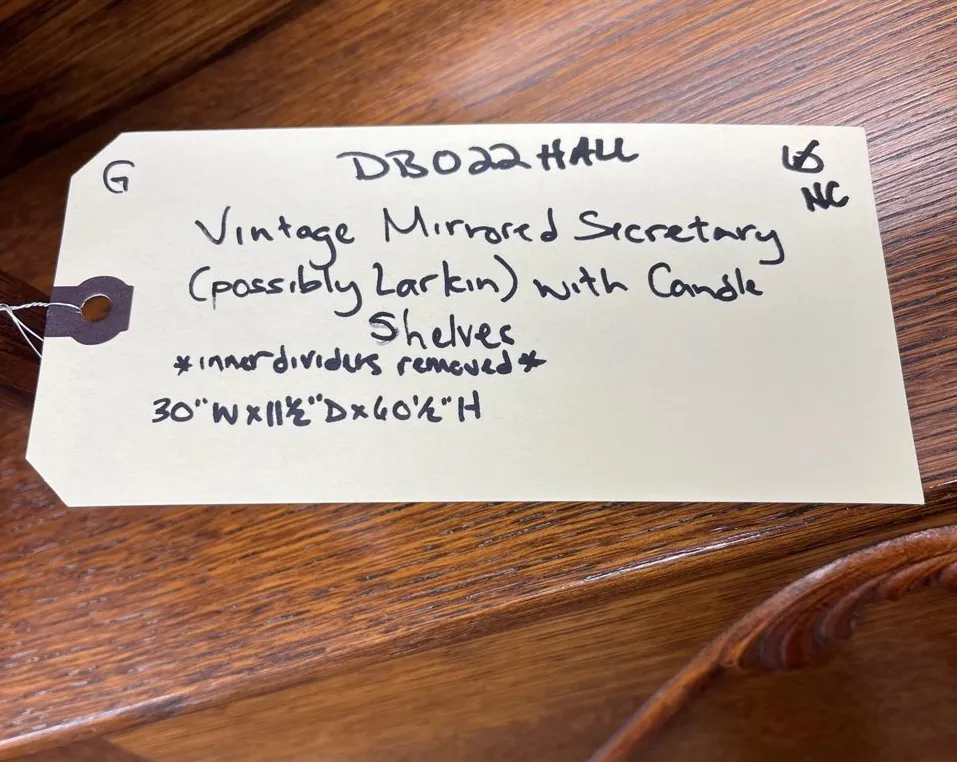 G
DB022HALL
NC
Vintage Mirrored Secretary
(possibly Larkin) with Candle
Shelves
*inner dividers removed*
30"W x 11½"D x 60½"H